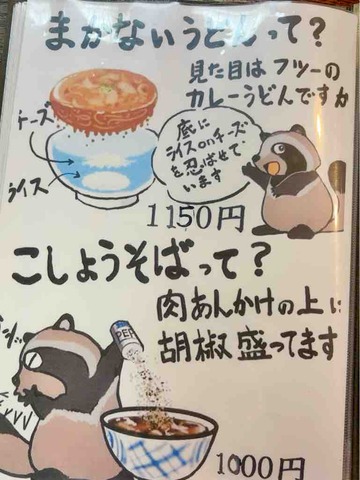 まかないうどんって?
見た目はフツーの
カレーうどんですが
チーズ
ライス
底に
ライスonチーズ
を忍ばせて
います
1150円
こしょうそばって?
肉あんかけの上に
胡椒盛ってます
PEP
1000円